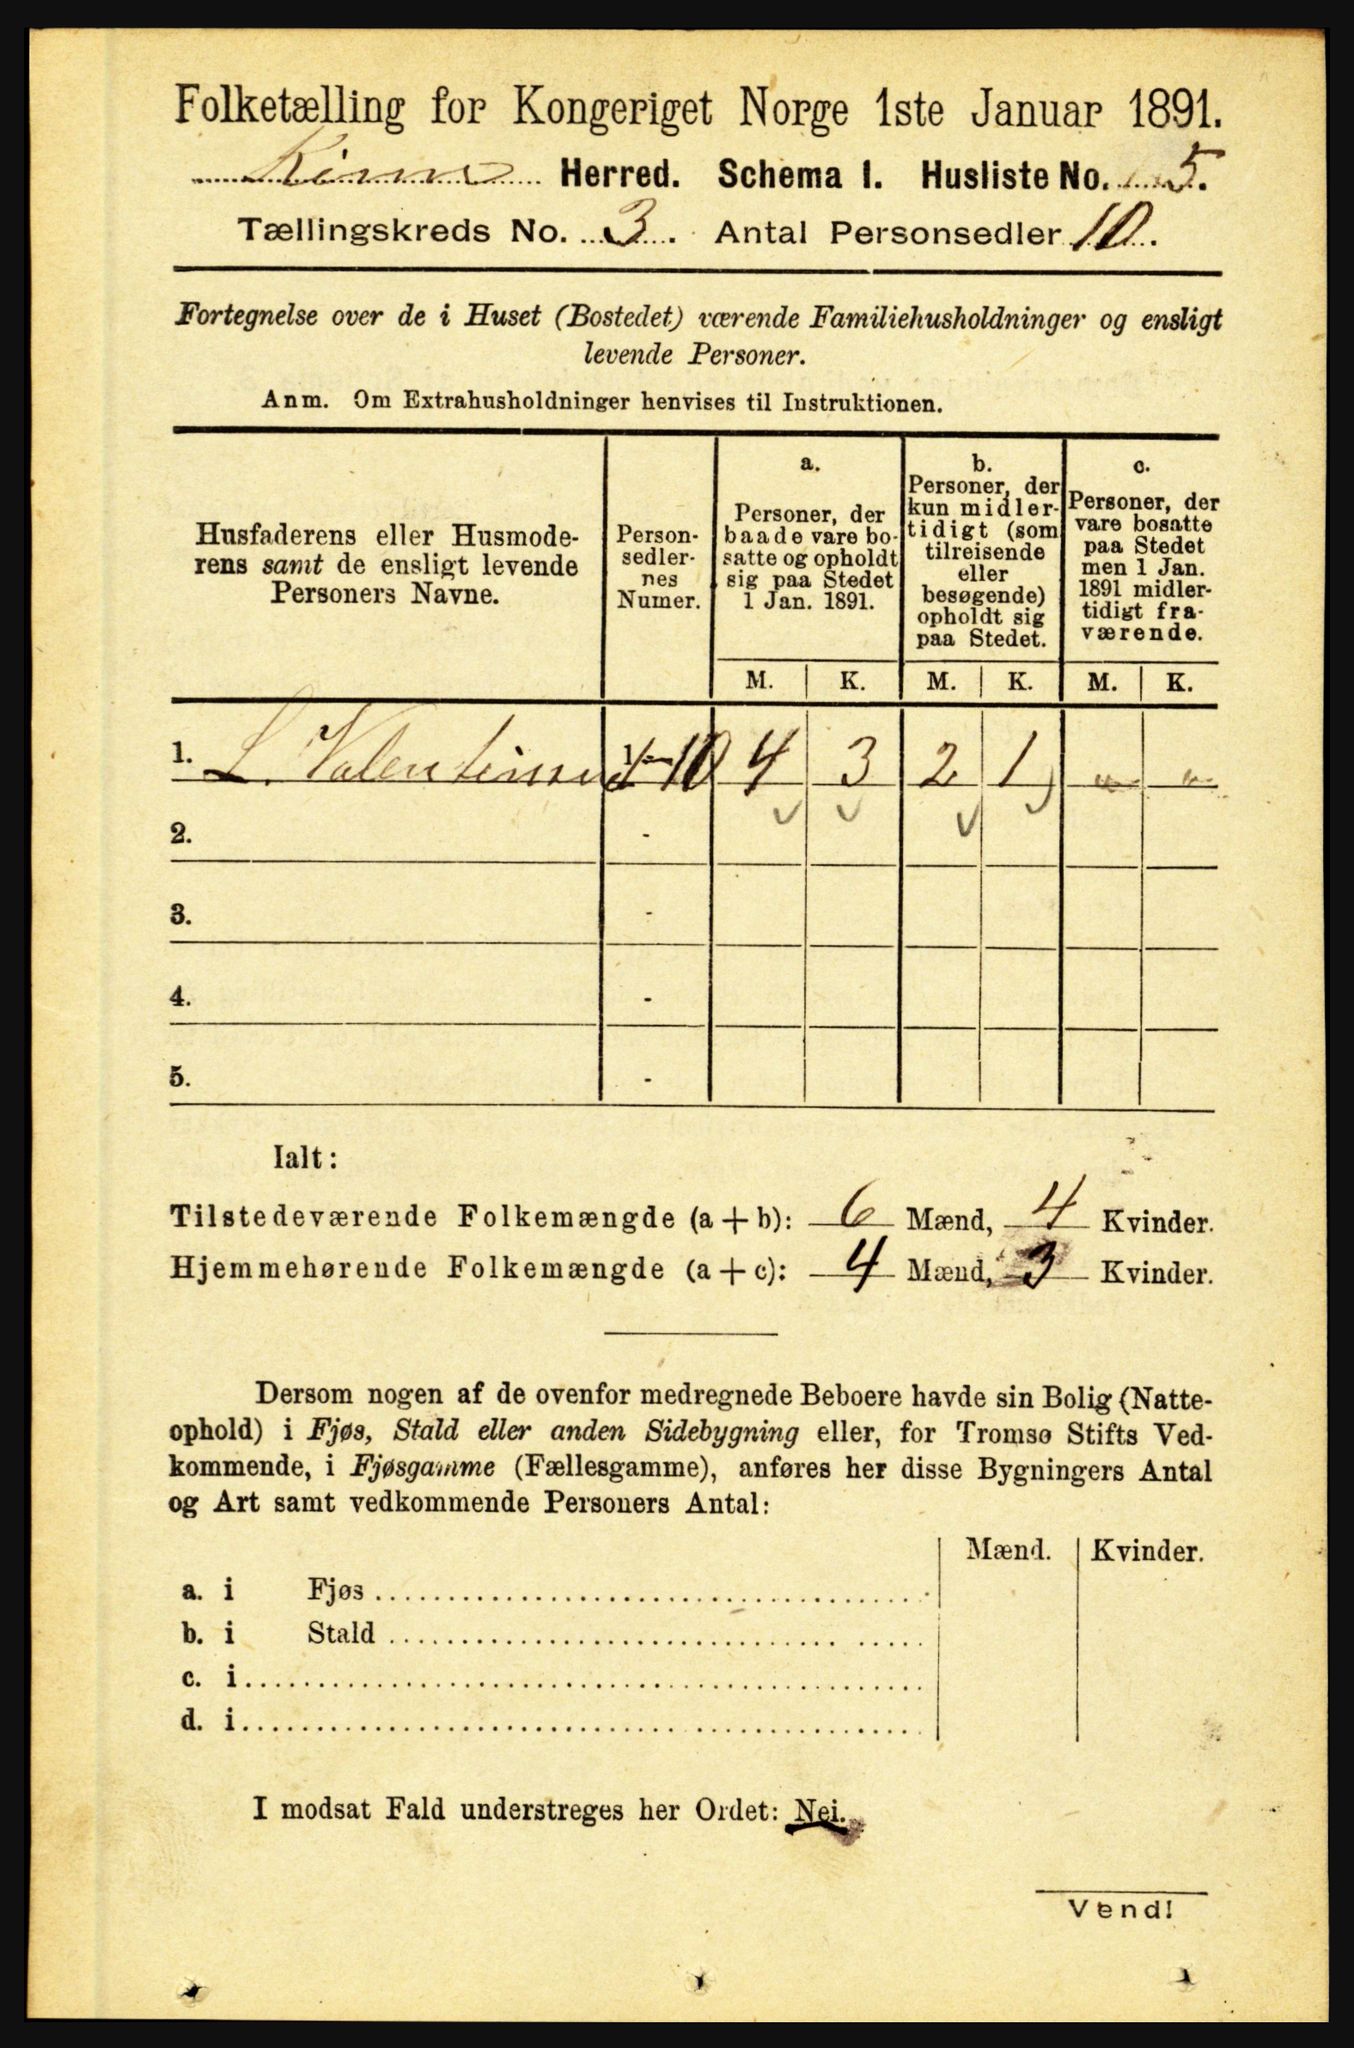 Folketælling for Kongeriget Norge 1ste Januar 1891.
Kinn Herred. Schema 1. Husliste No. 5.
Tællingskreds No. 3. Antal Personsedler 10.
Fortegnelse over de i Huset (Bostedet) værende Familiehusholdninger og ensligt
levende Personer.
Anm. Om Extrahusholdninger henvises til Instruktionen.
Husfaderens eller Husmode-
rens samt de ensligt levende
Personers Navne.
Person-
sedler-
nes
Numer.
a.
Personer, der
baade vare bo-
satte og opholdt
sig paa Stedet
1 Jan. 1891.
b.
Personer, der
kun midler-
tidigt (som
tilreisende
eller
besøgende)
opholdt sig
paa Stedet.
c.
Personer, der
vare bosatte
paa Stedet
men 1 Jan.
1891 midler-
tidigt fra-
værende.
M. K. M. K. M. K.
1. L. Valentinsen 1-10 4 3 2 1 " "
2. -
3. -
4. -
5. -
Ialt:
Tilstedeværende Folkemængde (a + b): 6 Mænd, 4 Kvinder.
Hjemmehørende Folkemængde (a + c): 4 Mænd, 3 Kvinder.
Dersom nogen af de ovenfor medregnede Beboere havde sin Bolig (Natte-
ophold) i Fjøs, Stald eller anden Sidebygning eller, for Tromsø Stifts Ved-
kommende, i Fjøsgamme (Fællesgamme), anføres her disse Bygningers Antal
og Art samt vedkommende Personers Antal:
Mænd. Kvinder.
a. i Fjøs
b. i Stald
c. i
d. i
I modsat Fald understreges her Ordet: Nei.
Vend!